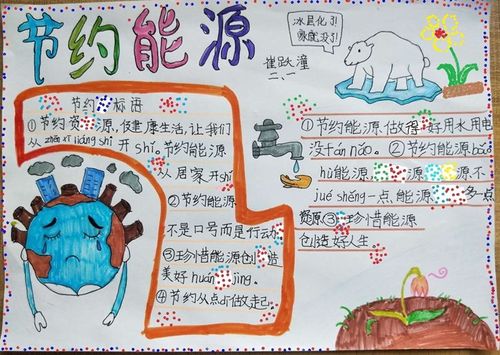 节约能源
冰融化了!
家就没了!
崔跃潼
二、一
节约 标语
①节约资 源,健康生活,让我们
从zhēn xī liáng shi 开shǐ。节约能源
从居家开shǐ
②节约能源
不是口号而是行动
③珍惜能源创造
美好huán jìng。
④节约从点dī做起
①节约能源,做得 好用水用电
没fán nǎo。②节约能源bǎo
hù能源, 源不
jué shěng一点,能源 多一点
资源③珍惜能源
创造好人生。